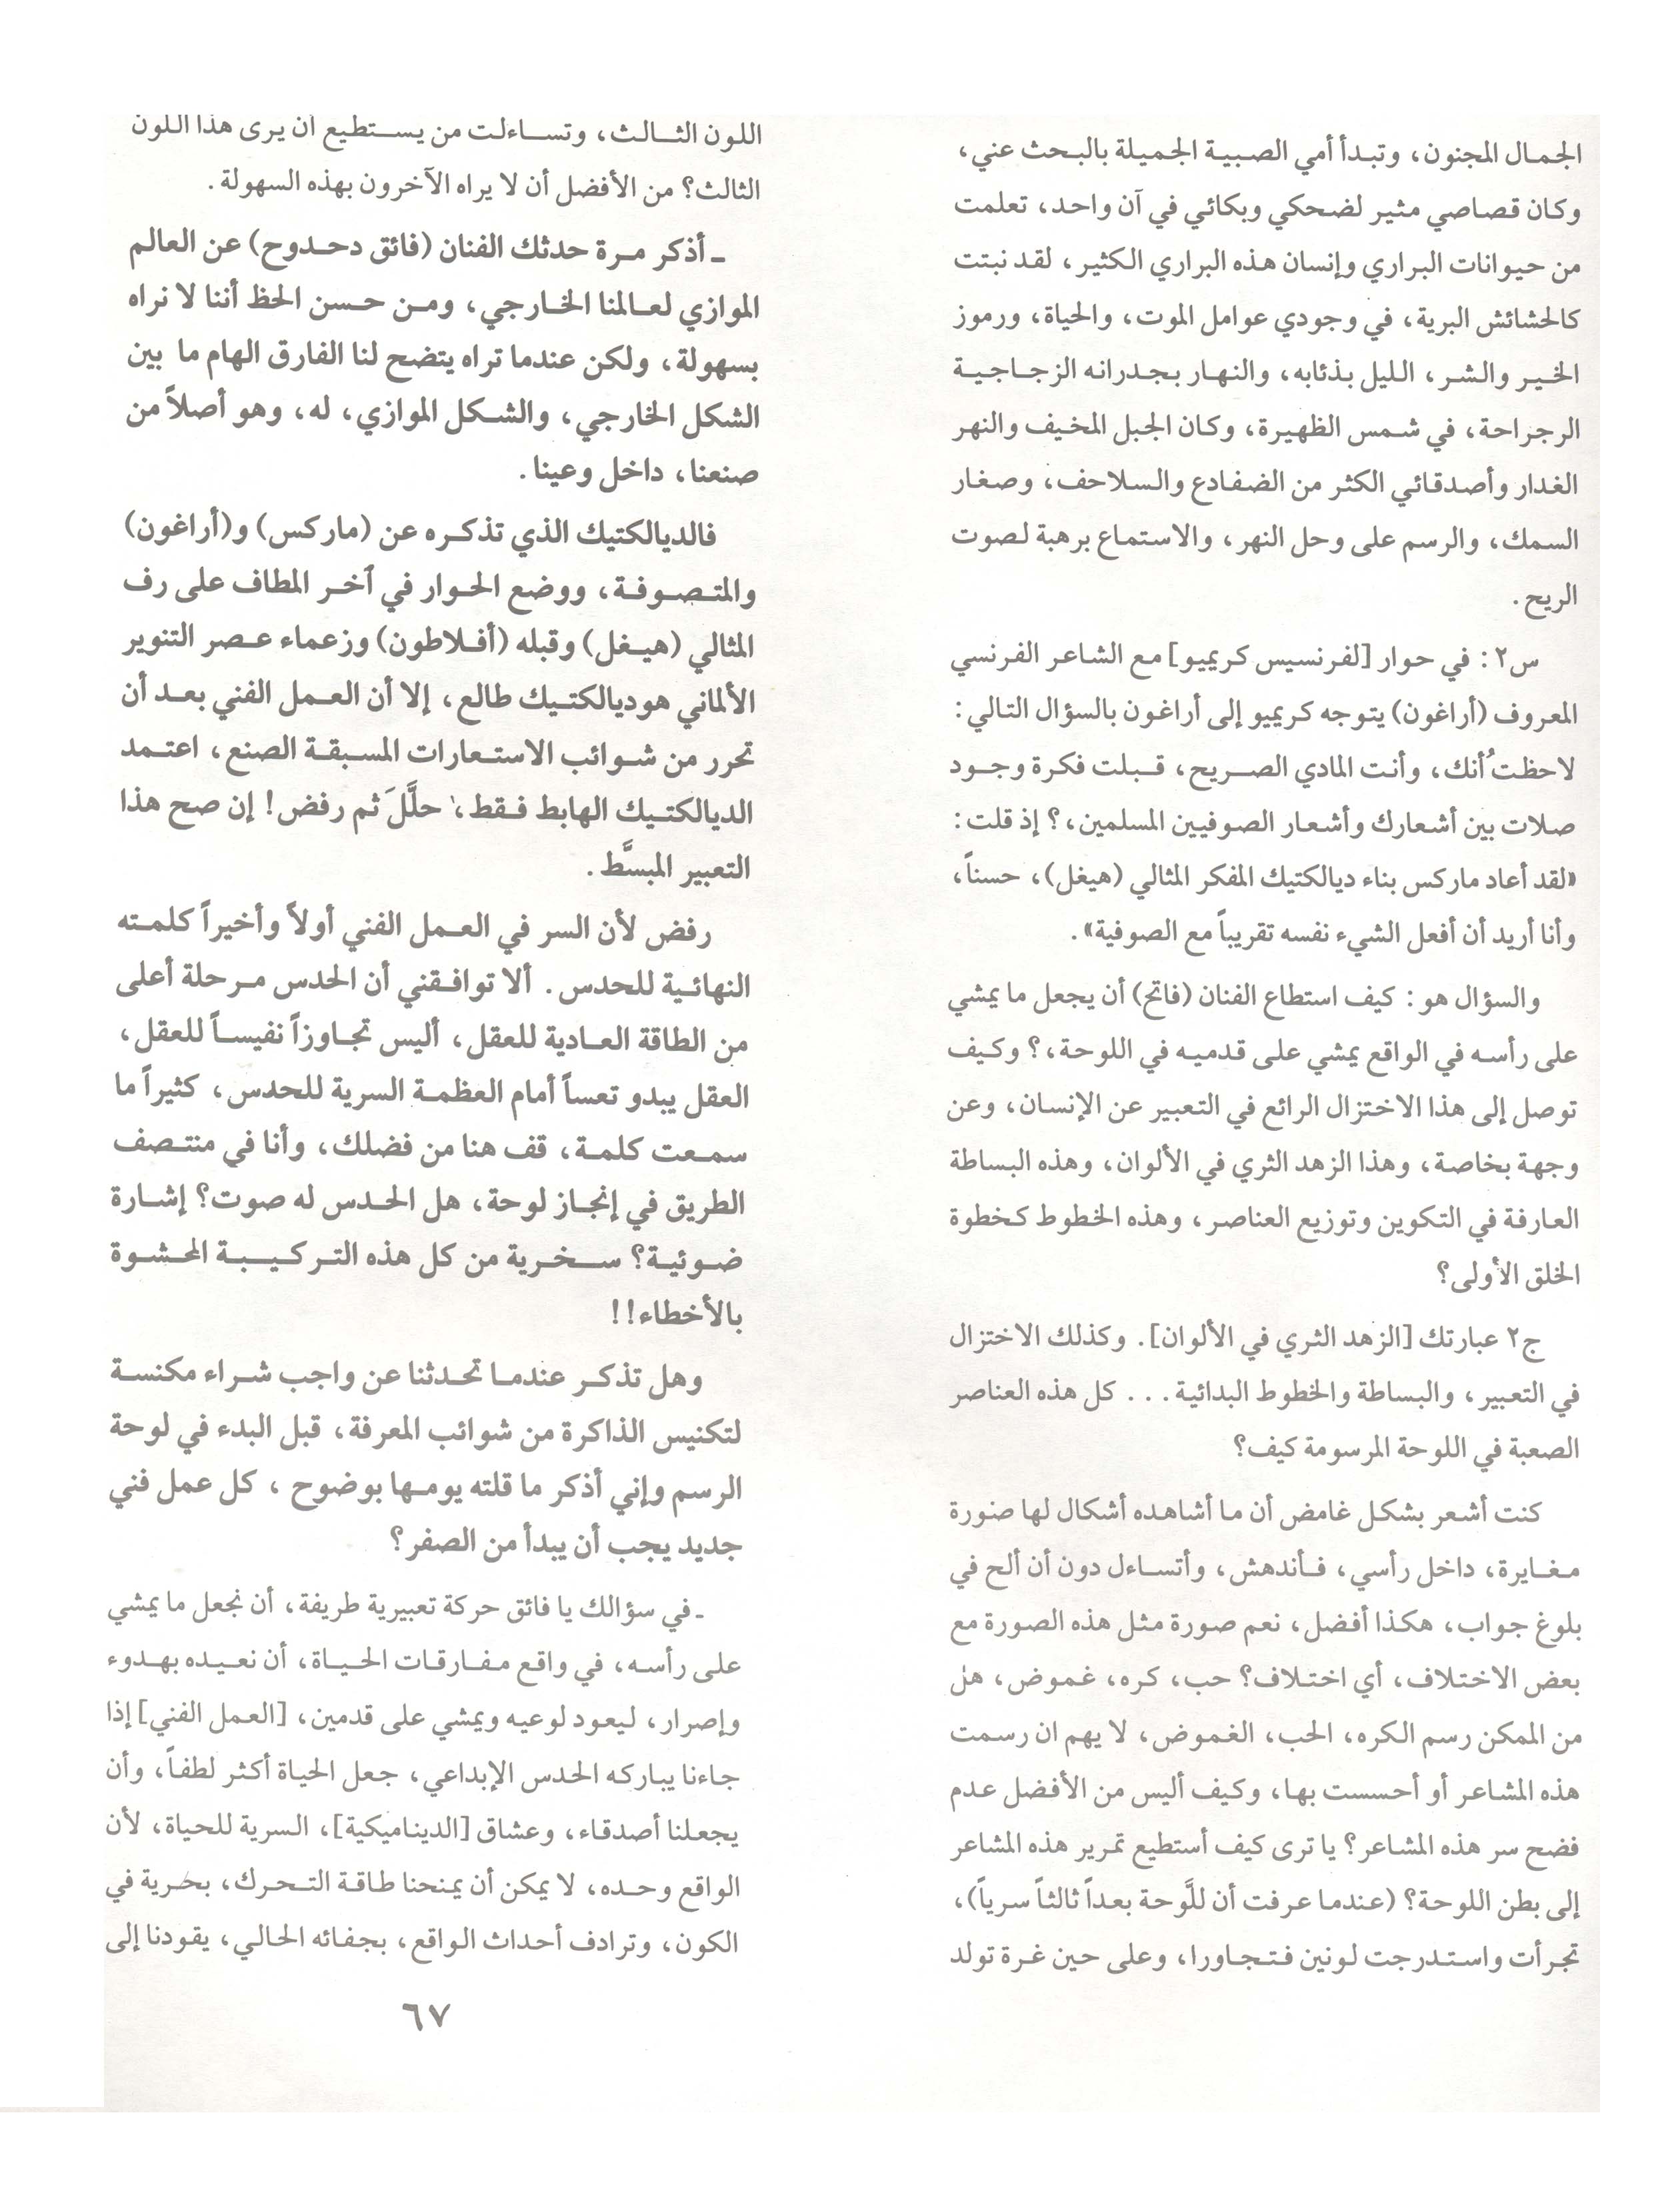 الجمال المجنون، وتبدأ أمي الصبية الجميلة بالبحث عني،
وكان قصاصي مثير لضحكي وبكائي في آن واحد، تعلمت
من حيوانات البراري وإنسان هذه البراري الكثير، لقد نبتت
كالحشائش البرية، في وجودي عوامل الموت، والحياة، ورموز
الخير والشر، الليل بذئابه، والنهار بجدرانه الزجاجية
الرجراحة، في شمس الظهيرة، وكان الجبل المخيف والنهر
الغدار وأصدقائي الكثر من الضفادع والسلاحف، وصغار
السمك، والرسم على وحل النهر، والاستماع برهبة لصوت
الريح.
س٢: في حوار [لفرنسيس كريميو] مع الشاعر الفرنسي
المعروف (أراغون) يتوجه كريميو إلى أراغون بالسؤال التالي:
لاحظتُ أنك، وأنت المادي الصريح، قبلت فكرة وجود
صلات بين أشعارك وأشعار الصوفيين المسلمين،؟ إذ قلت:
«لقد أعاد ماركس بناء ديالكتيك المفكر المثالي (هيغل)، حسناً،
وأنا أريد أن أفعل الشيء نفسه تقريباً مع الصوفية».
والسؤال هو: كيف استطاع الفنان (فاتح) أن يجعل ما يمشي
على رأسه في الواقع يمشي على قدميه في اللوحة،؟ وكيف
توصل إلى هذا الاختزال الرائع في التعبير عن الإنسان، وعن
وجهة بخاصة، وهذا الزهد الثري في الألوان، وهذه البساطة
العارفة في التكوين وتوزيع العناصر، وهذه الخطوط كخطوة
الخلق الأولى؟
ج٢ عبارتك [الزهد الثري في الألوان]. وكذلك الاختزال
في التعبير، والبساطة والخطوط البدائية... كل هذه العناصر
الصعبة في اللوحة المرسومة كيف؟
كنت أشعر بشكل غامض أن ما أشاهده أشكال لها صورة
مغايرة، داخل رأسي، فأندهش، وأتساءل دون أن ألح في
بلوغ جواب، هكذا أفضل، نعم صورة مثل هذه الصورة مع
بعض الاختلاف، أي اختلاف؟ حب، كره، غموض، هل
من الممكن رسم الكره، الحب، الغموض، لا يهم ان رسمت
هذه المشاعر أو أحسست بها، وكيف أليس من الأفضل عدم
فضح سر هذه المشاعر؟ يا ترى كيف أستطيع تمرير هذه المشاعر
إلى بطن اللوحة؟ (عندما عرفت أن للَّوحة بعداً ثالثاً سرياً)،
تجرأت واستدرجت لونين فتجاورا، وعلى حين غرة تولد
اللون الثالث، وتساءلت من يستطيع ان يرى هذا اللون
الثالث؟ من الأفضل أن لا يراه الآخرون بهذه السهولة.
ـ أذكر مرة حدثك الفنان (فائق دحدوح) عن العالم
الموازي لعالمنا الخارجي، ومن حسن الحظ أننا لا نراه
بسهولة، ولكن عندما تراه يتضح لنا الفارق الهام ما بين
الشكل الخارجي، والشكل الموازي، له، وهو أصلاً من
صنعنا، داخل وعينا.
فالديالكتيك الذي تذكره عن (ماركس) و(أراغون)
والمتصوفة، ووضع الحوار في آخر المطاف على رف
المثالي (هيغل) وقبله (أفلاطون) وزعماء عصر التنوير
الألماني هوديالكتيك طالع، إلا أن العمل الفني بعد أن
تحرر من شوائب الاستعارات المسبقة الصنع، اعتمد
الديالكتيك الهابط فقط، حلَّلَ ثم رفض! إن صح هذا
التعبير المبسَّط.
رفض لأن السر في العمل الفني أولاً وأخيراً كلمته
النهائية للحدس. ألا توافقني أن الحدس مرحلة أعلى
من الطاقة العادية للعقل، أليس تجاوزاً نفيساً للعقل،
العقل يبدو تعساً أمام العظمة السرية للحدس، كثيراً ما
سمعت كلمة، قف هنا من فضلك، وأنا في منتصف
الطريق في إنجاز لوحة، هل الحدس له صوت؟ إشارة
ضوئية؟ سخرية من كل هذه التركيبة المحشوة
بالأخطاء!!
وهل تذكر عندما تحدثنا عن واجب شراء مكنسة
لتكنيس الذاكرة من شوائب المعرفة، قبل البدء في لوحة
الرسم وإني أذكر ما قلته يومها بوضوح، كل عمل فني
جديد يجب أن يبدأ من الصفر؟
ـ في سؤالك يا فائق حركة تعبيرية طريفة، أن نجعل ما يمشي
على رأسه، في واقع مفارقات الحياة، أن نعيده بهدوء
وإصرار، ليعود لوعيه ويمشي على قدمين، [العمل الفني] إذا
جاءنا يباركه الحدس الإبداعي، جعل الحياة أكثر لطفاً، وأن
يجعلنا أصدقاء، وعشاق [الديناميكية]، السرية للحياة، لأن
الواقع وحده، لا يمكن أن يمنحنا طاقة التحرك، بحرية في
الكون، وترادف أحداث الواقع، بجفائه الحالي، يقودنا إلى
٦٧